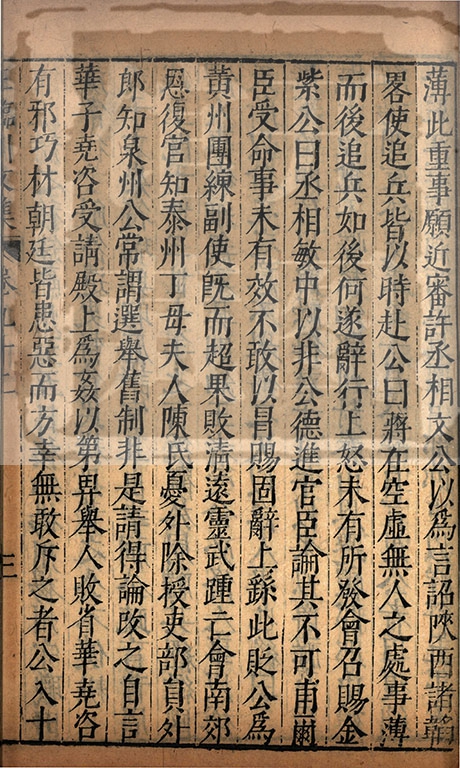 薄此重事願近審許丞相文公以爲言詔陝西諸
畧使追兵皆以時赴公曰將在空虛無人之處事薄
而後追兵如後何遂辭行上怒未有所發會召賜金
紫公曰丞相敏中以非公德進官臣論其不可甫爾
臣受命事未有效不敢以冒賜固辭上繇此貶公爲
黃州團練副使旣而超果敗清遠靈武踵亡會南郊
恩復官知泰州丁母夫人陳氏憂外除授吏部員外
郎知泉州公常謂選舉舊制非是請得論改之自言
華子堯咨受請殿上爲姦以第畀舉人敗省華堯咨
有邪巧材朝廷皆患惡而方幸無敢斥之者公入十
卷九十二
三